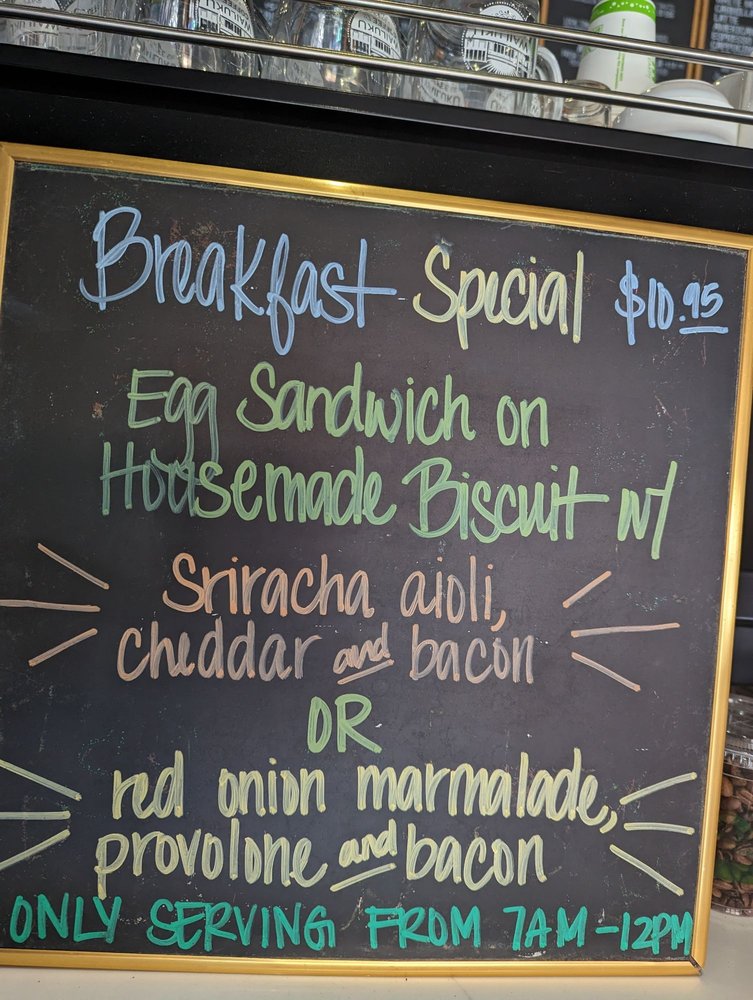 Breakfast Special $10.95
Egg Sandwich on
Housemade Biscuit w/
Sriracha aioli,
cheddar and bacon
OR
red onion marmalade,
provolone and bacon
ONLY SERVING FROM 7AM-12PM